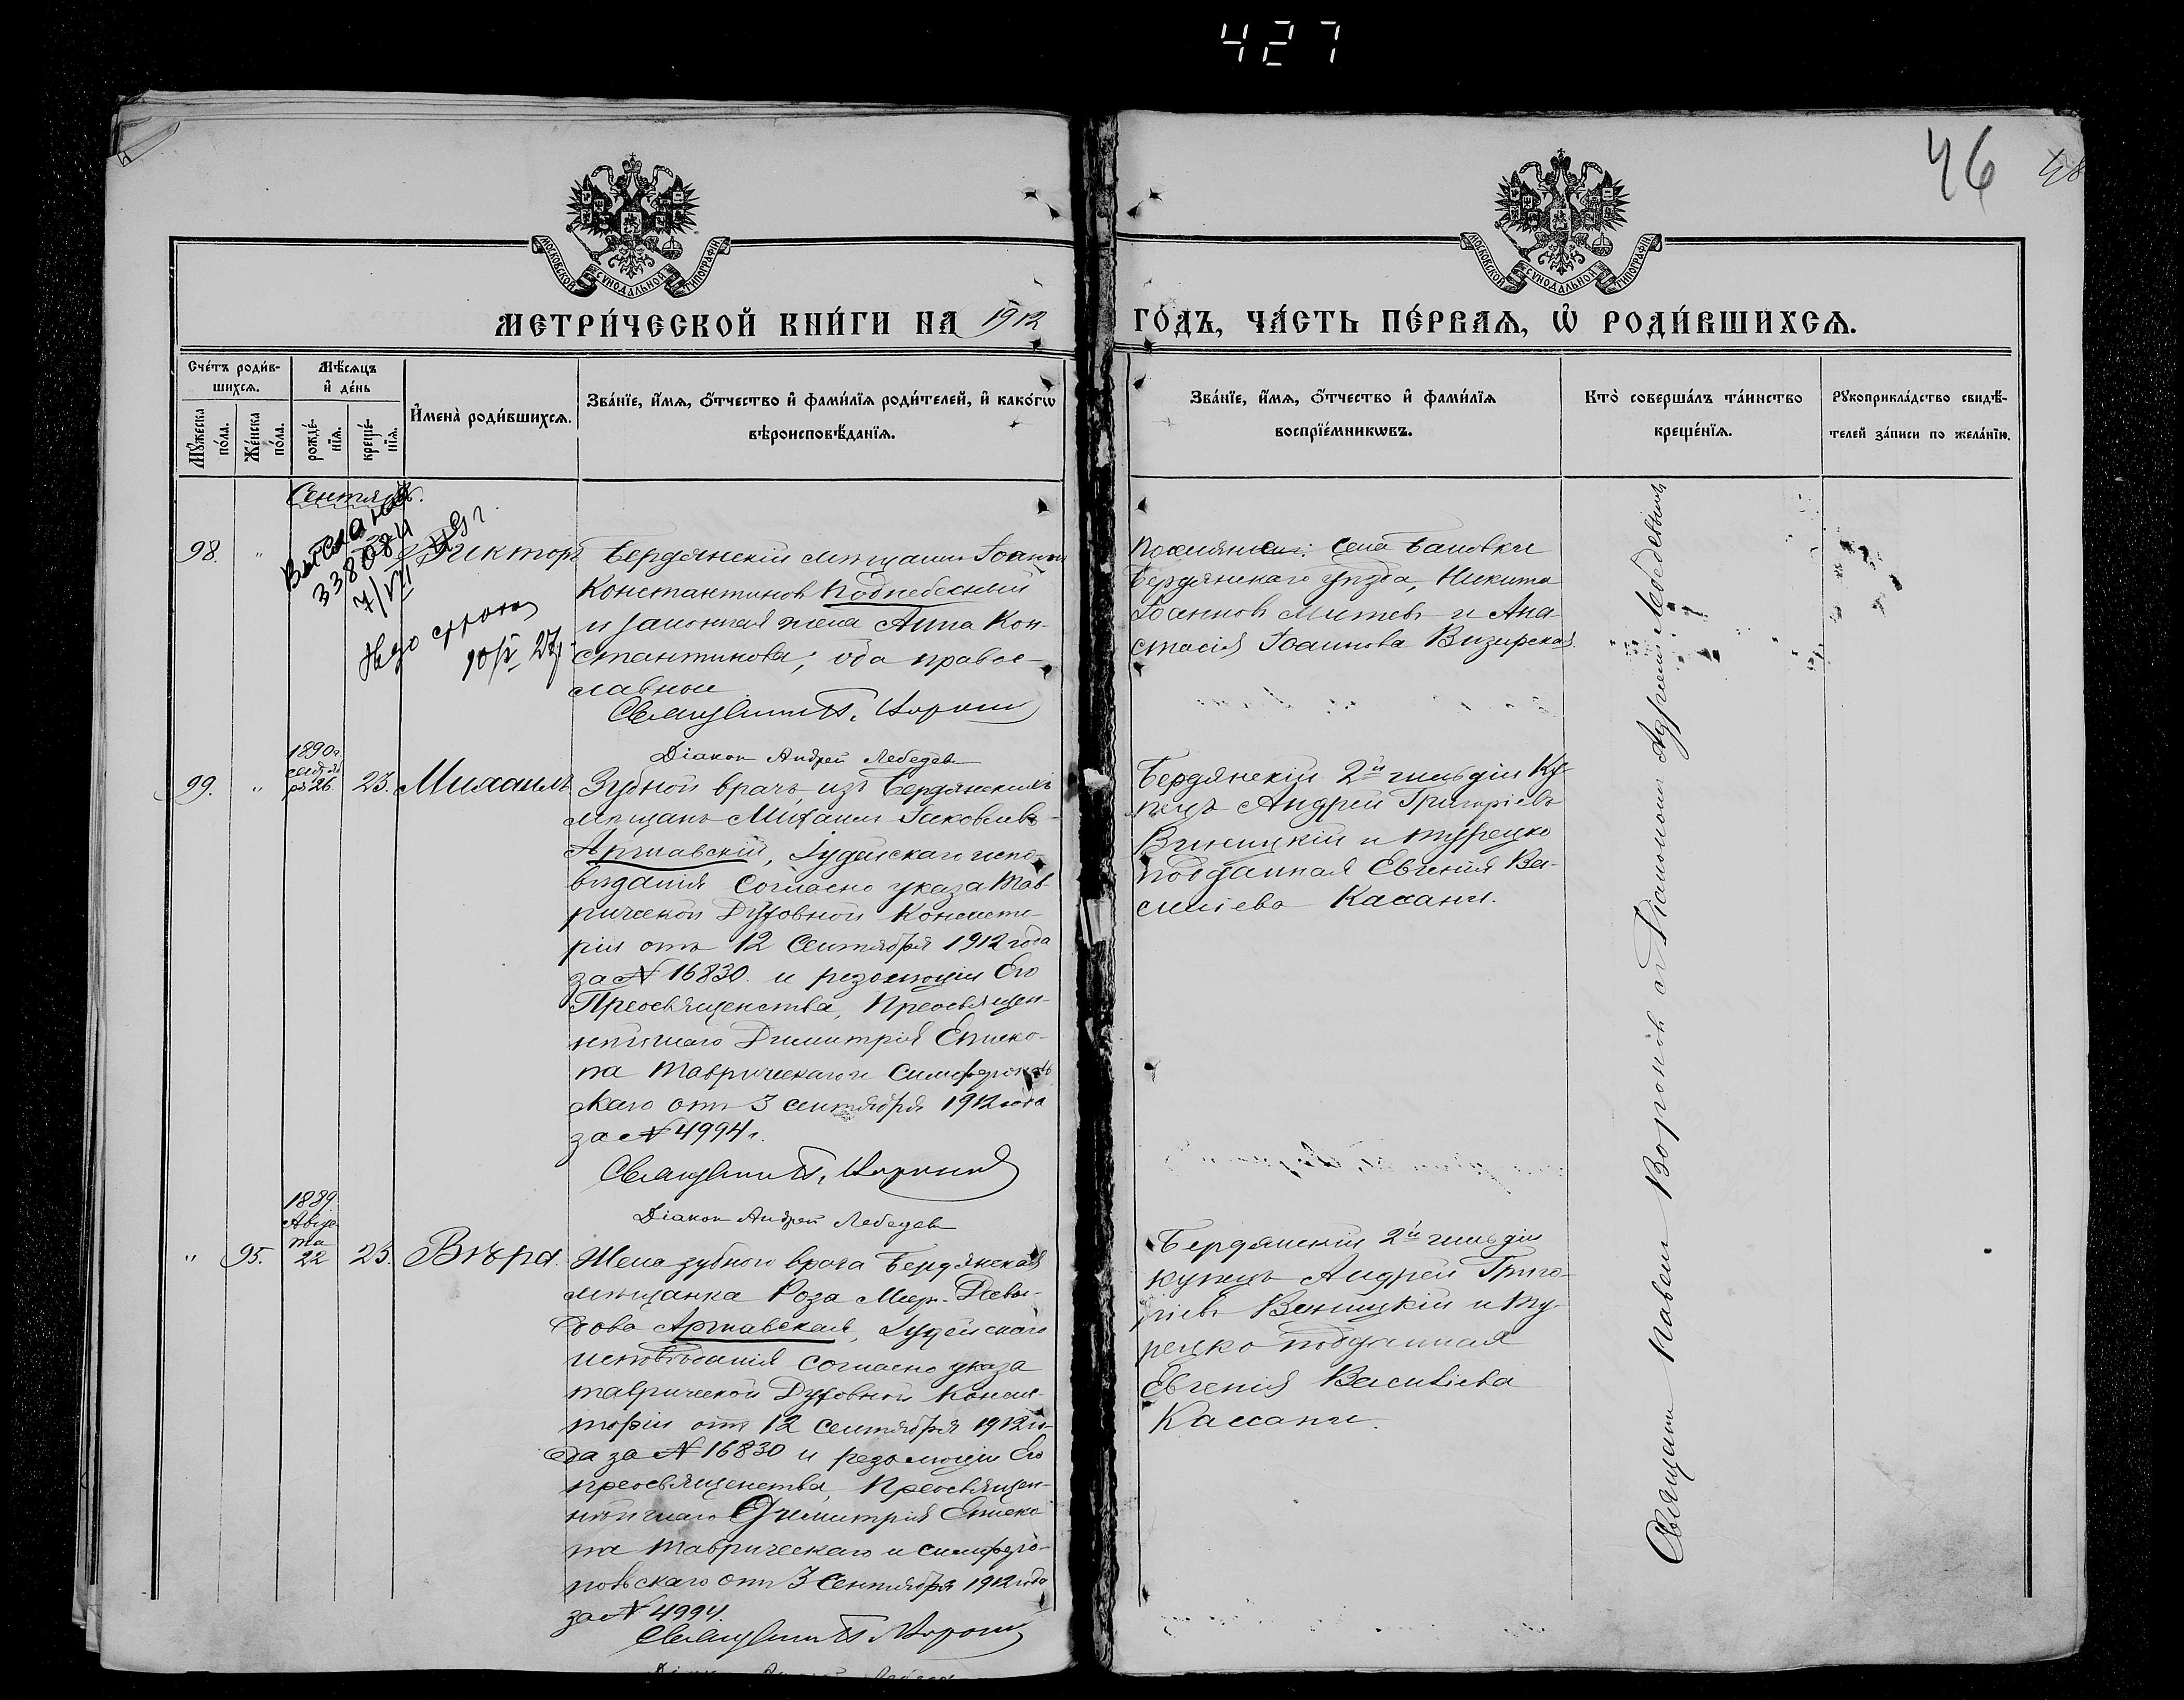 427
46
48
МОСКОВСКОЙ СѴНОДАЛЬНОЙ ТИПОГРАФІИ
МОСКОВСКОЙ СѴНОДАЛЬНОЙ ТИПОГРАФІИ
МЕТРИ́ЧЕСКОЙ КНИ́ГИ НА 1912
ГО́ДЪ, ЧА́СТЬ ПЕ́РВАЯ, Ѡ РОДИ́ВШИХСЯ.
Сче́тъ роди́в-
шихся.
Мѣсяцъ
и де́нь
Мꙋжеска
по́ла.
Же́нска
по́ла.
рожде́-
нїя.
креще́-
нїя.
Имена̀ роди́вшихся.
Зва́нїе, и́мя, ѻ́тчество и фами́лїя роди́телей, и како́гѡ
вѣроисповѣ́данїя.
Зва́нїе, и́мя, ѻ́тчество и фами́лїя
воспрїе́мникѡвъ.
Кто̀ соверша́лъ та́инство
креще́нїя.
Рꙋкоприкла́дство свидѣ́-
телей за́писи по жела́нїю.
Сентябрь.
98.
"
338084
7/VII
27
Викторъ
Бердянскій мѣщанин Іоанн
Константинов Поднебесный
и законная жена Анна Кон-
стантинова, оба правос-
лавные
Діакон Андрей Лебедев
поселянин села Бановки
Бердянскаго уезда, Никита
Іоаннов Митев и Ана-
стасія Іоаннова Визирская.
99.
"
1890 г.
сентяб
ря 26
23.
Михаилъ
Зубной врачъ, изъ Бердянскихъ
мѣщанъ Михаил Іаковлев
Аршавскій, Іудейскаго испо-
вѣданія согласно указа Тав-
рической Духовной Консисто-
ріи отъ 12 Сентября 1912 года
за № 16830 и резолюціи Его
Преосвященства, Преосвящен-
нѣйшаго Димитрія Еписко-
па Таврическаго и Симферополь
скаго отъ 3 сентября 1912 года
за № 4994.
Діакон Андрей Лебедев
Бердянскій 2й гильдіи Ку-
пецъ Андрей Григоріевъ
Виницкій и турецко
подданная Евгенія Ва-
силіева Кассани.
"
95.
1889.
Авгус
та
22
23.
Вѣра.
Жена зубного врача Бердянская
мѣщанка Роза Меер-Давы-
дова Аршавская, Іудейскаго
исповѣданія согласно указа
таврической Духовной Консис-
торіи отъ 12 сентября 1912 го-
да за № 16830 и резолюціи Его
преосвященства, Преосвящен-
нѣйшаго Димитрія Еписко
па Таврическаго и симферо-
польскаго отъ 3 Сентября 1912 года
за № 4994.
Бердянскій 2й гильдіи
купецъ Андрей Григо-
ріевъ Виницкій и ту-
рецко подданная
Евгенія Василіева
Кассани.
Священник Павел Воронов с Діаконом Андреем Лебедевымъ